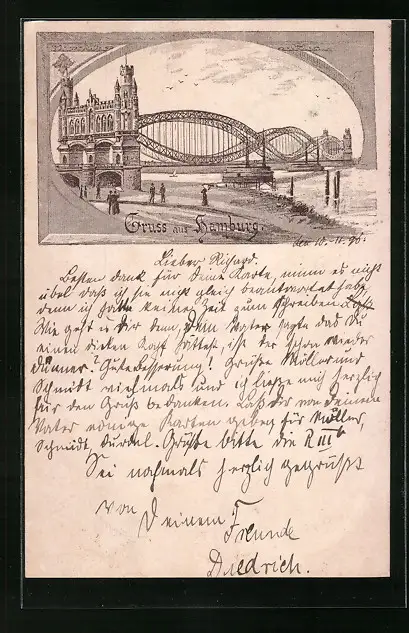 Gruss aus Hamburg.
den 10. 11. 96.
Lieber Richard.
Besten dank für Deine Karte, nimm es nicht
übel daß ich sie nicht gleich beantwortet habe,
denn ich hatte keine Zeit zum schreiben
Wie geht es dir denn, Dein Vater sagte daß Du
einen dicken Kopf hättest, ist der schon wieder
dünner? Gute Besserung! Grüße Möller und
Schmidt vielmals und ich ließe mich herzlich
für den Gruß bedanken. Laß dir von deinem
Vater einige Karten geben für Müller,
Schmidt, Grüße bitte die R III b
Sei nochmals herzlich gegrüßt
von
Deinem
Freunde
Diedrich.